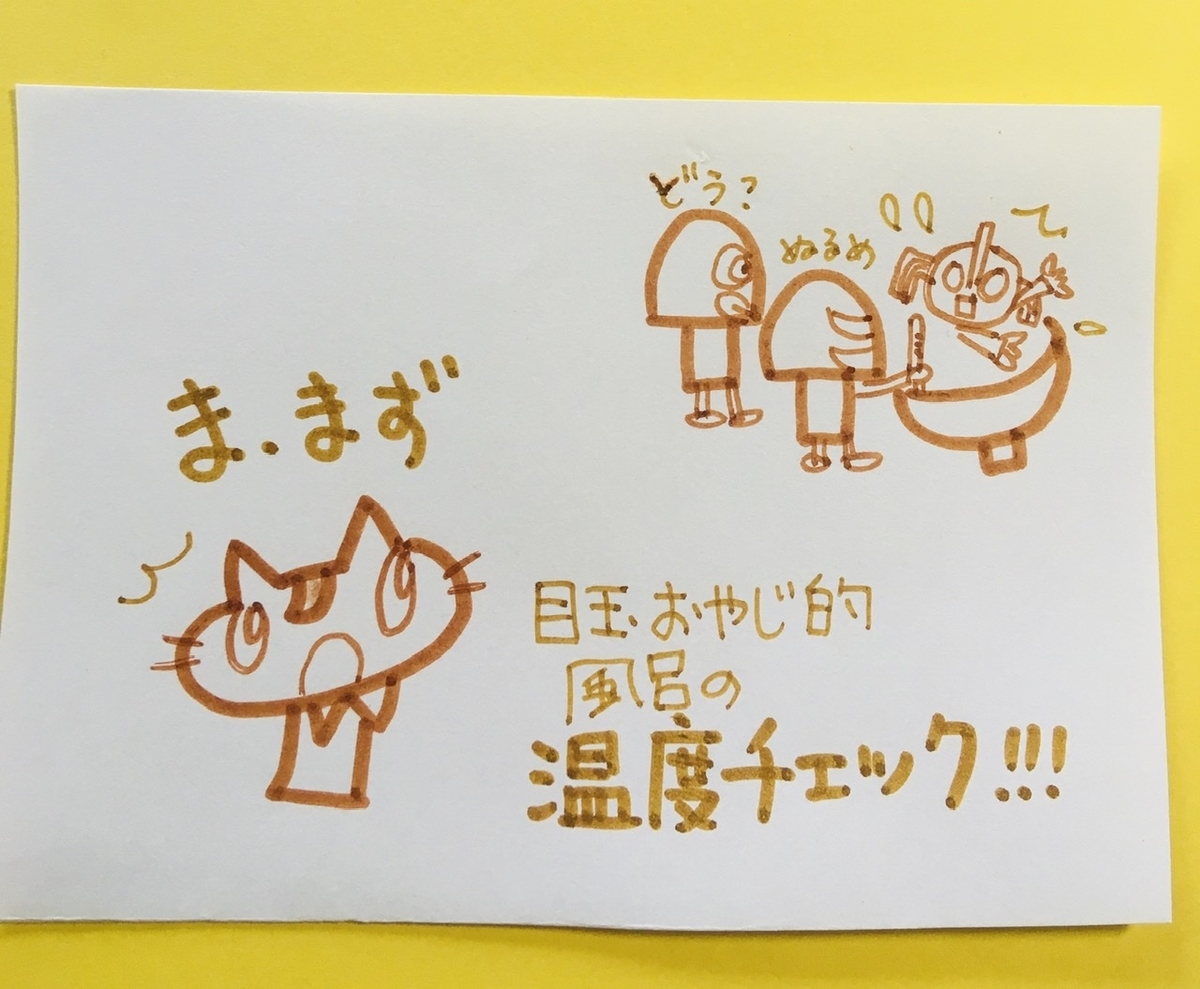 どう?
ぬるめ
ま.まず
目玉おやじ的
風呂の
温度チェック!!!